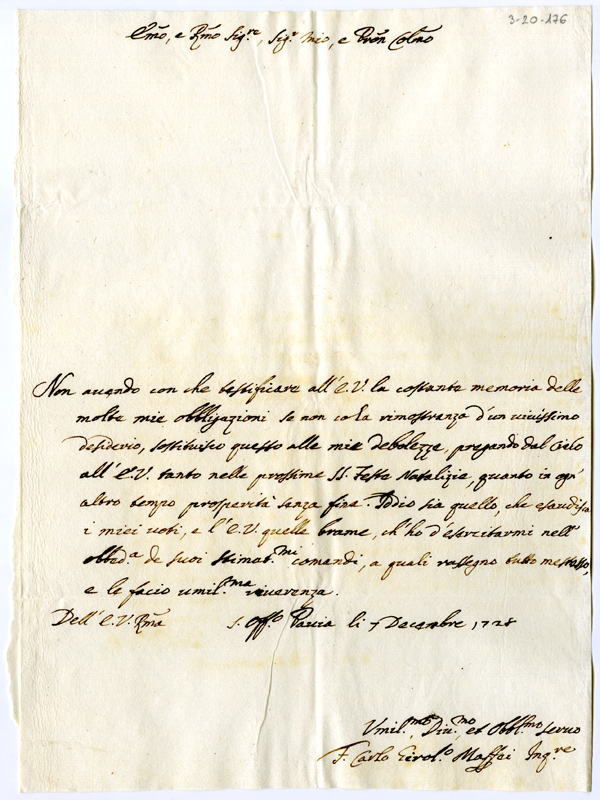 3-20-176
Em̃o, e Rm̃o Sig.re, Sig.r mio, e Prõn Colm̃o
Non auendo con che testificare all'E.V. la costante memoria delle
molte mie obbligazioni se non co la rimostranza d'un uiuissimo
desiderio, sostituisco questo alle mie debolezze, pregando dal Cielo
all'E.V. tanto nelle prossime SS. Feste Natalizie, quanto in ogn'
altro tempo prosperità senza fine. Iddio sia quello, che esaudisca
i miei uoti, e l'E.V. quelle brame, ch'ho d'esercitarmi nell'
obbed.a de suoi stimat.mi comandi, a quali rassegno tutto me stesso,
e le facio umil.ma riuerenza.
Dell'E.V. Rm̃a
S. Off.o Pauia li 7 Decembre 1728
Vmil.mo, Diu.mo, et Obbl.mo Seruo
F. Carlo Girol.o Maffei Inq.re